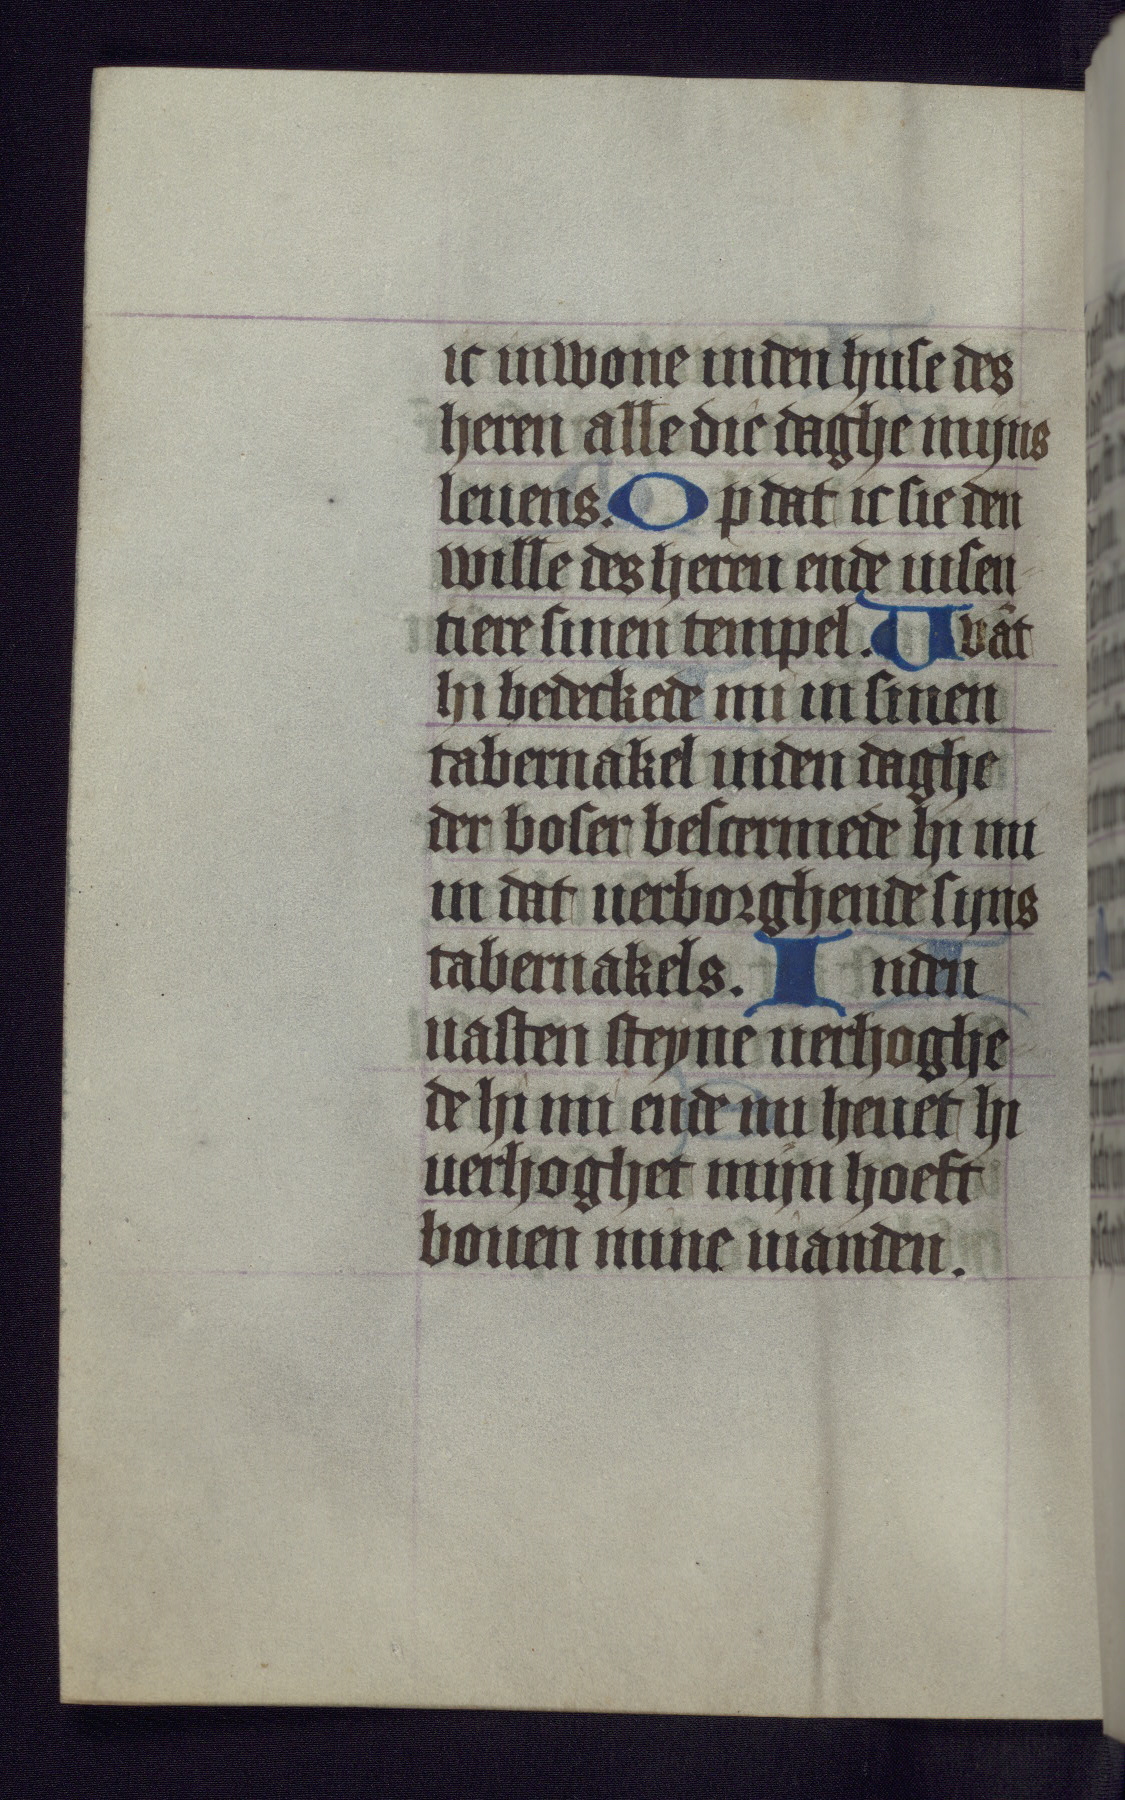 ic inwone inden huse des
heren alle die daghe mijns
leuens. Op dat ic sie den
wille des heren ende uisen
tiere sinen tempel. Uvāt
hi bedeckede mi in sinen
tabernakel inden daghe
der boser bescermede hi mi
in dat uerborghende sijns
tabernakels. Inden
uasten steyne uerhoghe
de hi mi ende nu heuet hi
uerhoghet mijn hoeft
bouen mine uianden.